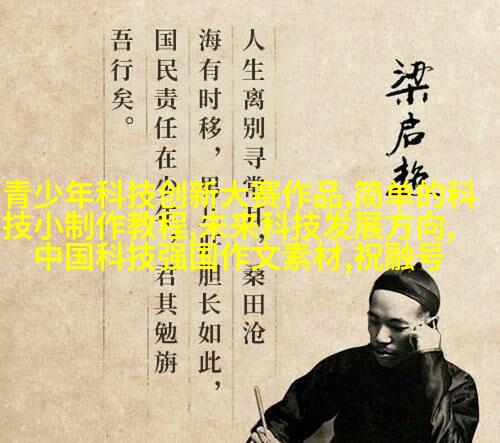 人生离别寻常耳，桑田沧
海有时移，男儿肝胆长如此，
国民责任在少年，君其勉旃
吾行矣。
梁启超
青少年科技创新大赛作品,简单的科
技小制作教程,未来科技发展方向,
中国科技强国作文素材,祝融号